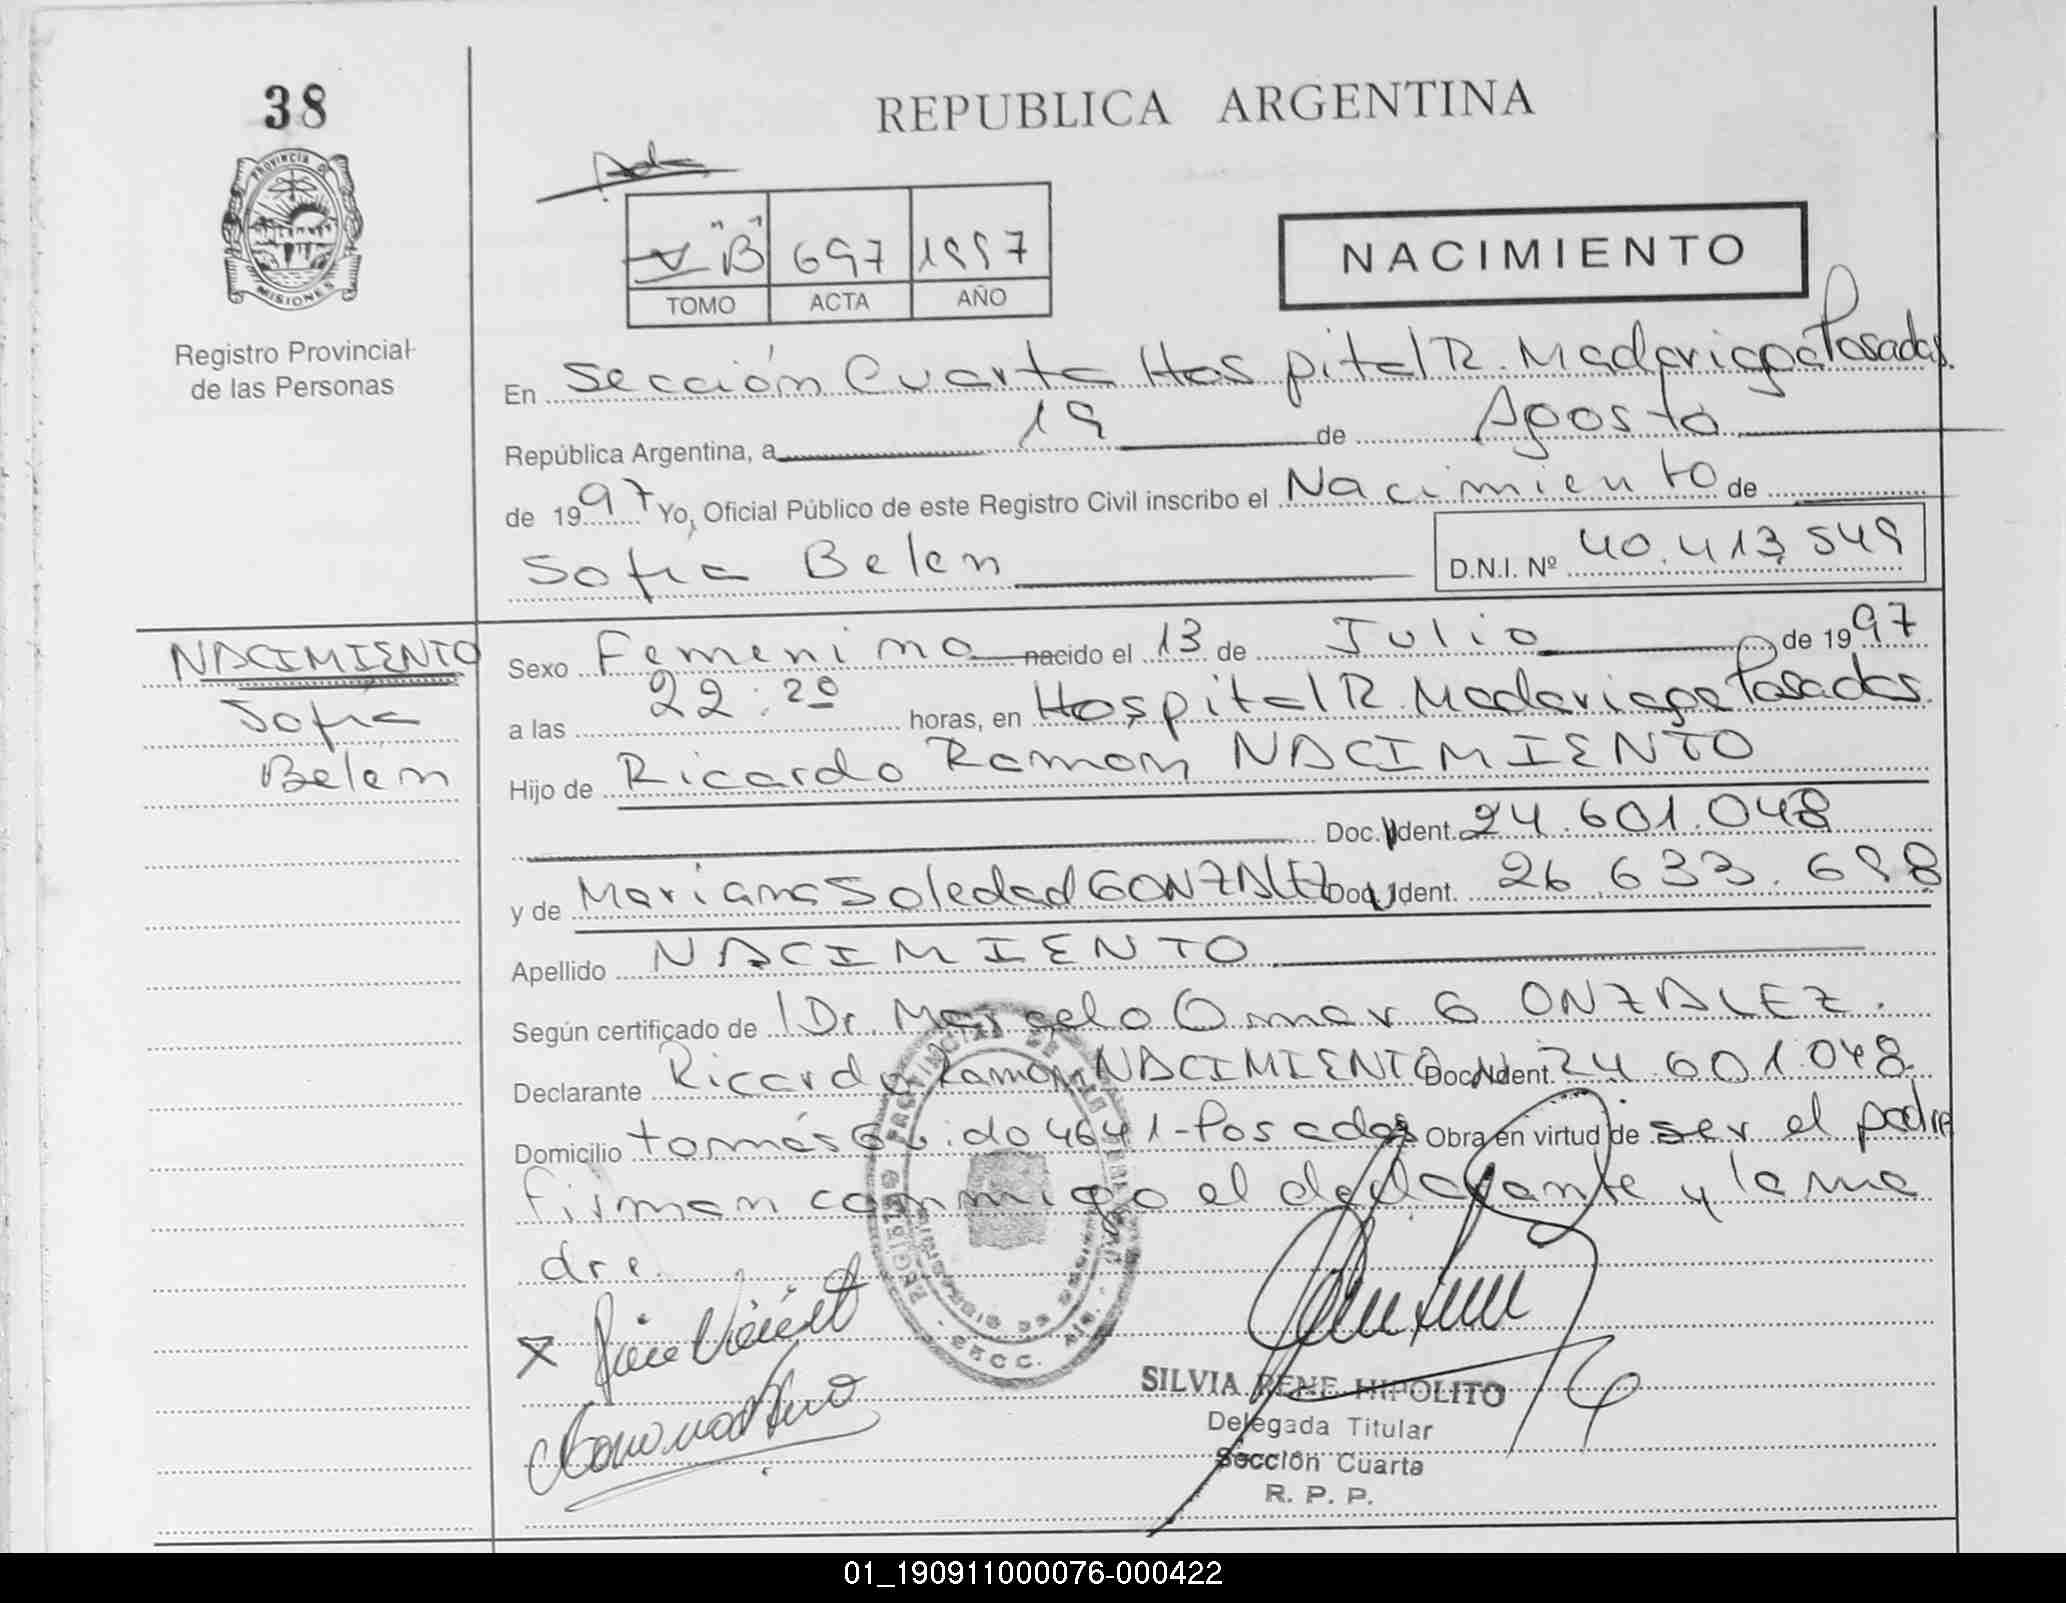 38
REPUBLICA ARGENTINA
PROVINCIA DE
MISIONES
Registro Provincial
de las Personas
"B" 697 1997
TOMO ACTA AÑO
NACIMIENTO
En Sección Cuarta Hospital R. Madariaga Posadas.
República Argentina, a 19 de Agosto
de 1997 Yo, Oficial Público de este Registro Civil inscribo el Nacimiento de
Sofia Belen D.N.I. Nº 40.413.549
NACIMIENTO
Sofia
Belen
Sexo Femenino nacido el 13 de Julio de 1997
a las 22:20 horas, en Hospital R. Madariaga Posadas.
Hijo de Ricardo Ramon NACIMIENTO
Doc. Ident. 24.601.048
y de Mariana Soledad GONZALEZ Doc. Ident. 26.633.698
Apellido NACIMIENTO
Según certificado de Dr. Marcelo Omar GONZALEZ.
Declarante Ricardo Ramon NACIMIENTO Doc. Ident. 24.601.048
Domicilio tomás Guido 4641-Posadas Obra en virtud de ser el padre
Firman conmigo el declarante y la ma
dre.
X
SILVIA RENE HIPOLITO
Delegada Titular
Sección Cuarta
R. P. P.
01_190911000076-000422